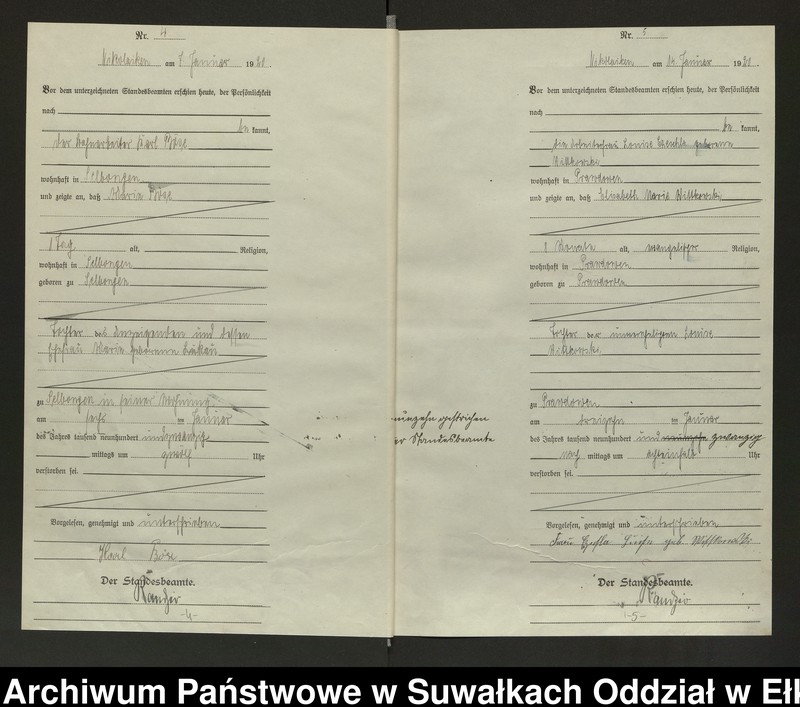 Nr. 4
Nikolaiken am 7. Januar 1920.
Vor dem unterzeichneten Standesbeamten erschien heute, der Persönlichkeit
nach
be kannt,
der Karl Böse
wohnhaft in Selbongen
und zeigte an, daß Maria Böse
1 Tag alt, Religion,
wohnhaft in Selbongen
geboren zu Selbongen
Tochter des Anzeigenden und dessen
Ehefrau Maria geborene
zu Selbongen in seiner Wohnung
am sechs ten Januar
des Jahres tausend neunhundert undzwanzig
mittags um zwölf Uhr
verstorben sei.
Vorgelesen, genehmigt und unterschrieben
Karl Böse
Der Standesbeamte.
-4-
neunzehn gestrichen
er Standesbeamte
Nr. 5
Nikolaiken am 14. Januar 1920.
Vor dem unterzeichneten Standesbeamten erschien heute, der Persönlichkeit
nach
be kannt,
die Arbeiterfrau Louise geborene
Wittkowski
wohnhaft in Prawdowen
und zeigte an, daß Elisabeth Marie Wittkowski
8 Monate alt, evangelischer Religion,
wohnhaft in Prawdowen
geboren zu Prawdowen
Tochter der unverehelichten Louise
Wittkowski
zu Prawdowen
am dreizehn ten Januar
des Jahres tausend neunhundert und neunzehn zwanzig
nach mittags um achteinhalb Uhr
verstorben sei.
Vorgelesen, genehmigt und unterschrieben
Frau geb Wittkowski
Der Standesbeamte.
-5-
Archiwum Państwowe w Suwałkach Oddział w Ełk